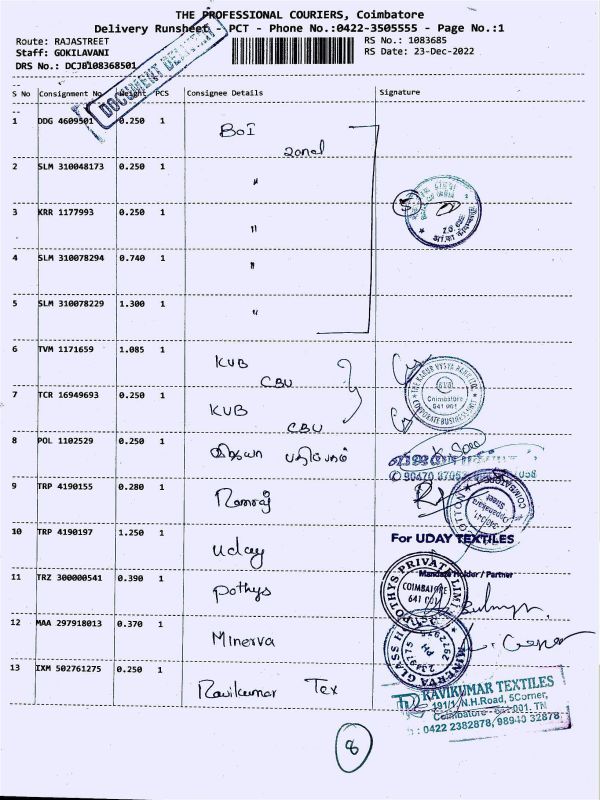 THE PROFESSIONAL COURIERS, Coimbatore
Delivery Runsheet - PCT - Phone No.:0422-3505555 - Page No.:1
Route: RAJASTREET
Staff: GOKILAVANI
DRS No.: DCJB108368501
RS No.: 1083685
RS Date: 23-Dec-2022
S No Consignment No Weight PCS Consignee Details Signature
1 DDG 4609501 0.250 1 BOI
zonal
2 SLM 310048173 0.250 1 "
3 KRR 1177993 0.250 1 "
4 SLM 310078294 0.740 1 "
5 SLM 310078229 1.300 1 "
6 TVM 1171659 1.085 1 KVB
CBU
THE KARUR VYSYA BANK LTD.
Coimbatore
641 001
CORPORATE BUSINESS UNIT
7 TCR 16949693 0.250 1 KVB
CBU
8 POL 1102529 0.250 1 பதிப்பகம்
9 TRP 4190155 0.280 1 Ramraj
COTTON
COIMBATORE
Street
10 TRP 4190197 1.250 1 Uday
For UDAY TEXTILES
Mandate Holder / Partner
11 TRZ 300000541 0.390 1 Pothys
POTHYS PRIVATE LIMI
COIMBATORE
641 001
12 MAA 297918013 0.370 1 Minerva
MINERVA GLASS H
PH
2349775
13 IXM 502761275 0.250 1 Ravikumar Tex
RAVIKUMAR TEXTILES
191/1, N.H.Road, 5Corner,
Coimbatore - 641 001. TN
: 0422 2382878, 98940 32878
8
DOCUMENT DELIVERY